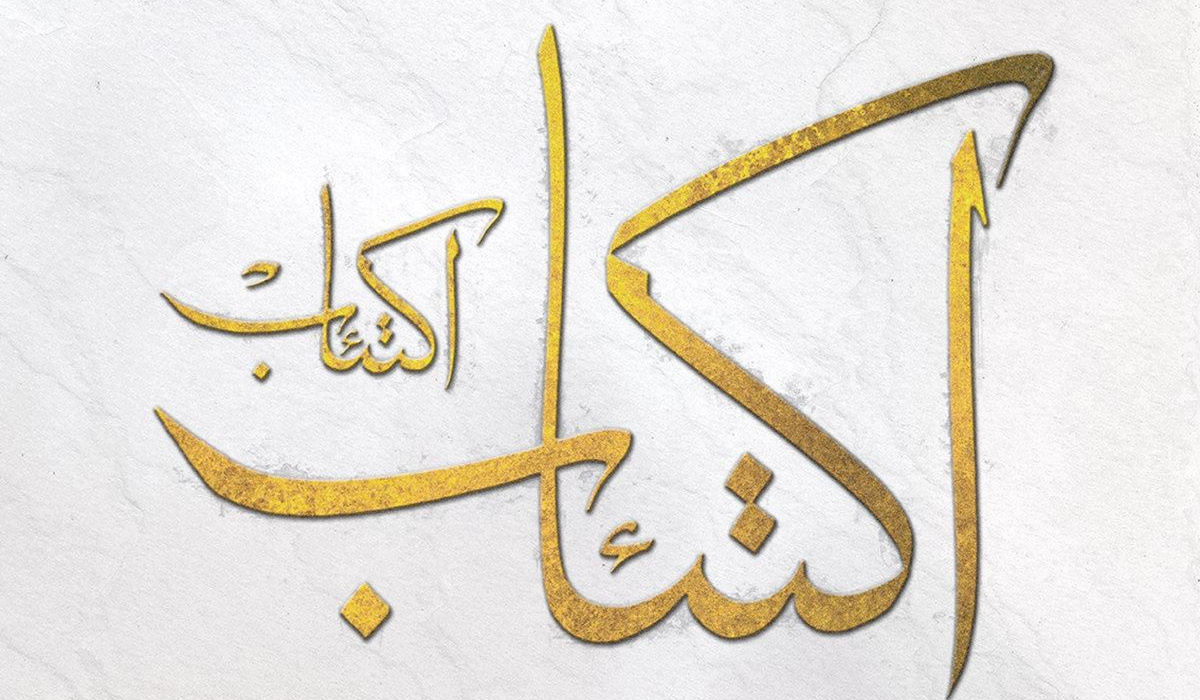 اكتئاب
اكتئاب